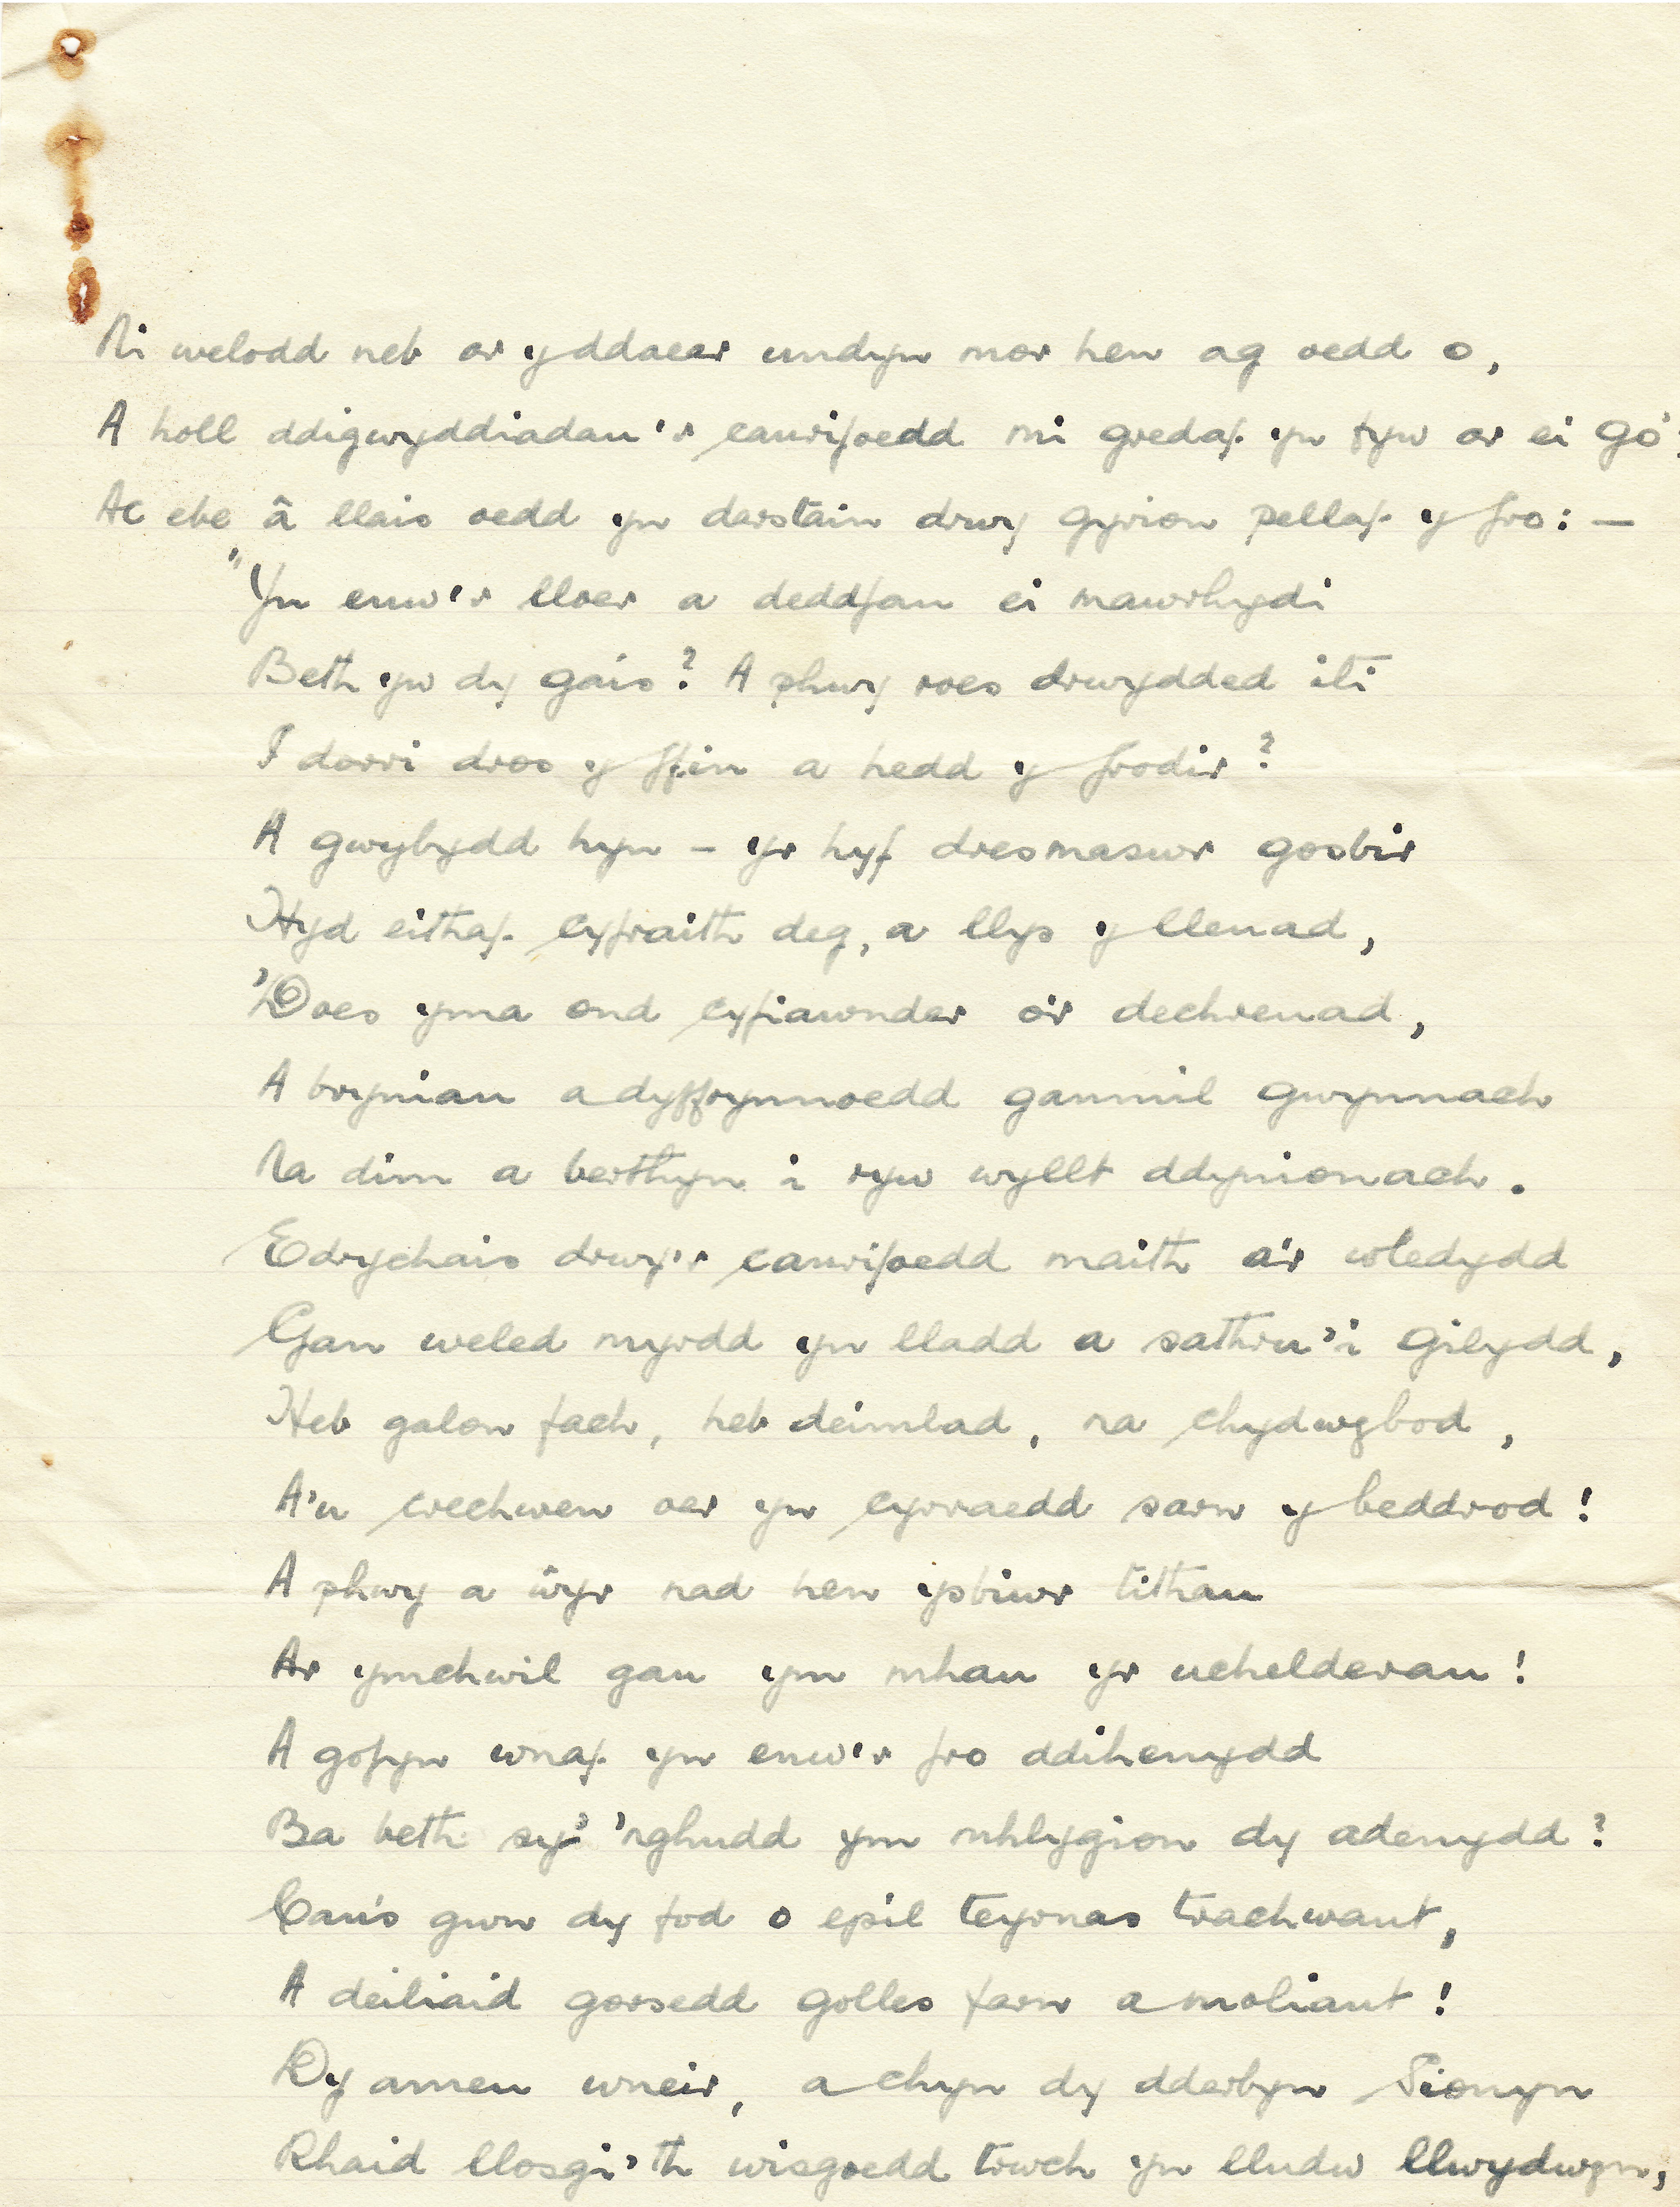 Ni welodd neb ar y ddaear undyn mor hen ag oedd o,
A holl ddigwyddiadau'r canrifoedd mi gredaf yn fyw ar ei go';
Ac ebe â llais oedd yn darstain drwy gyrion pellaf y fro: —
"Yn enw'r lloer a deddfau ei mawrhydi
Beth yw dy gais? A phwy roes drwydded iti
I dorri dros y ffin a hedd y frodir?
A gwybydd hyn – yr hyf dresmaswr gosbir
Hyd eithaf cyfraith deg, a llys y lleuad,
'Does yma ond cyfiawnder o'r dechreuad,
A bryniau a dyffrynnoedd ganmil gwynnach
Na dim a berthyn i ryw wyllt ddynionach.
Edrychais drwy'r canrifoedd maith a'r wledydd
Gan weled myrdd yn lladd a sathru'i gilydd,
Heb galon fach, heb deimlad, na chydwybod,
A'u crechwen oer yn cyrraedd sarn y beddrod!
A phwy a ŵyr nad hen ysbiwr tithau
Ar ymchwil gau ym mhau yr uchelderau!
A gofyn wnaf yn enw'r fro ddihenydd
Ba beth sy' 'nghudd ym mhlygion dy adenydd?
Can's gwn dy fod o epil teyrnas trachwant,
A deiliaid gorsedd golles farn a moliant!
Dy amau wneir, a chyn dy dderbyn Sionyn
Rhaid llosgi'th wisgoedd trwch yn lludw llwydwyn,